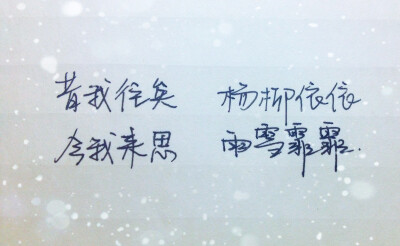 昔我往矣 杨柳依依
今我来思 雨雪霏霏.